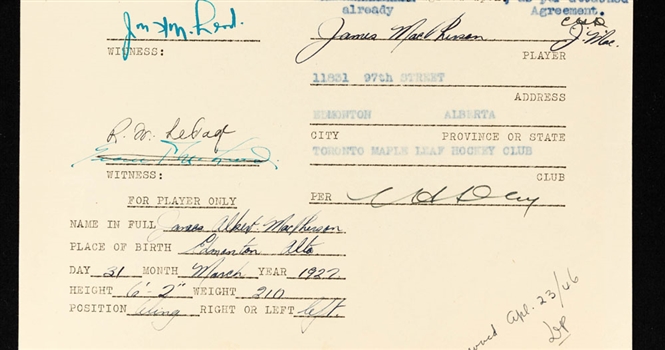 as per attached
already Agreement.
James MacPherson
J. Mac.
WITNESS: PLAYER
11831 97th STREET
ADDRESS
EDMONTON ALBERTA
CITY PROVINCE OR STATE
TORONTO MAPLE LEAF HOCKEY CLUB
WITNESS: CLUB
PER
FOR PLAYER ONLY
NAME IN FULL James Albert MacPherson
PLACE OF BIRTH Edmonton Alta
DAY 21 MONTH March YEAR 1927
HEIGHT 6'-2" WEIGHT 210
POSITION Wing RIGHT OR LEFT left.
Apl. 23/46